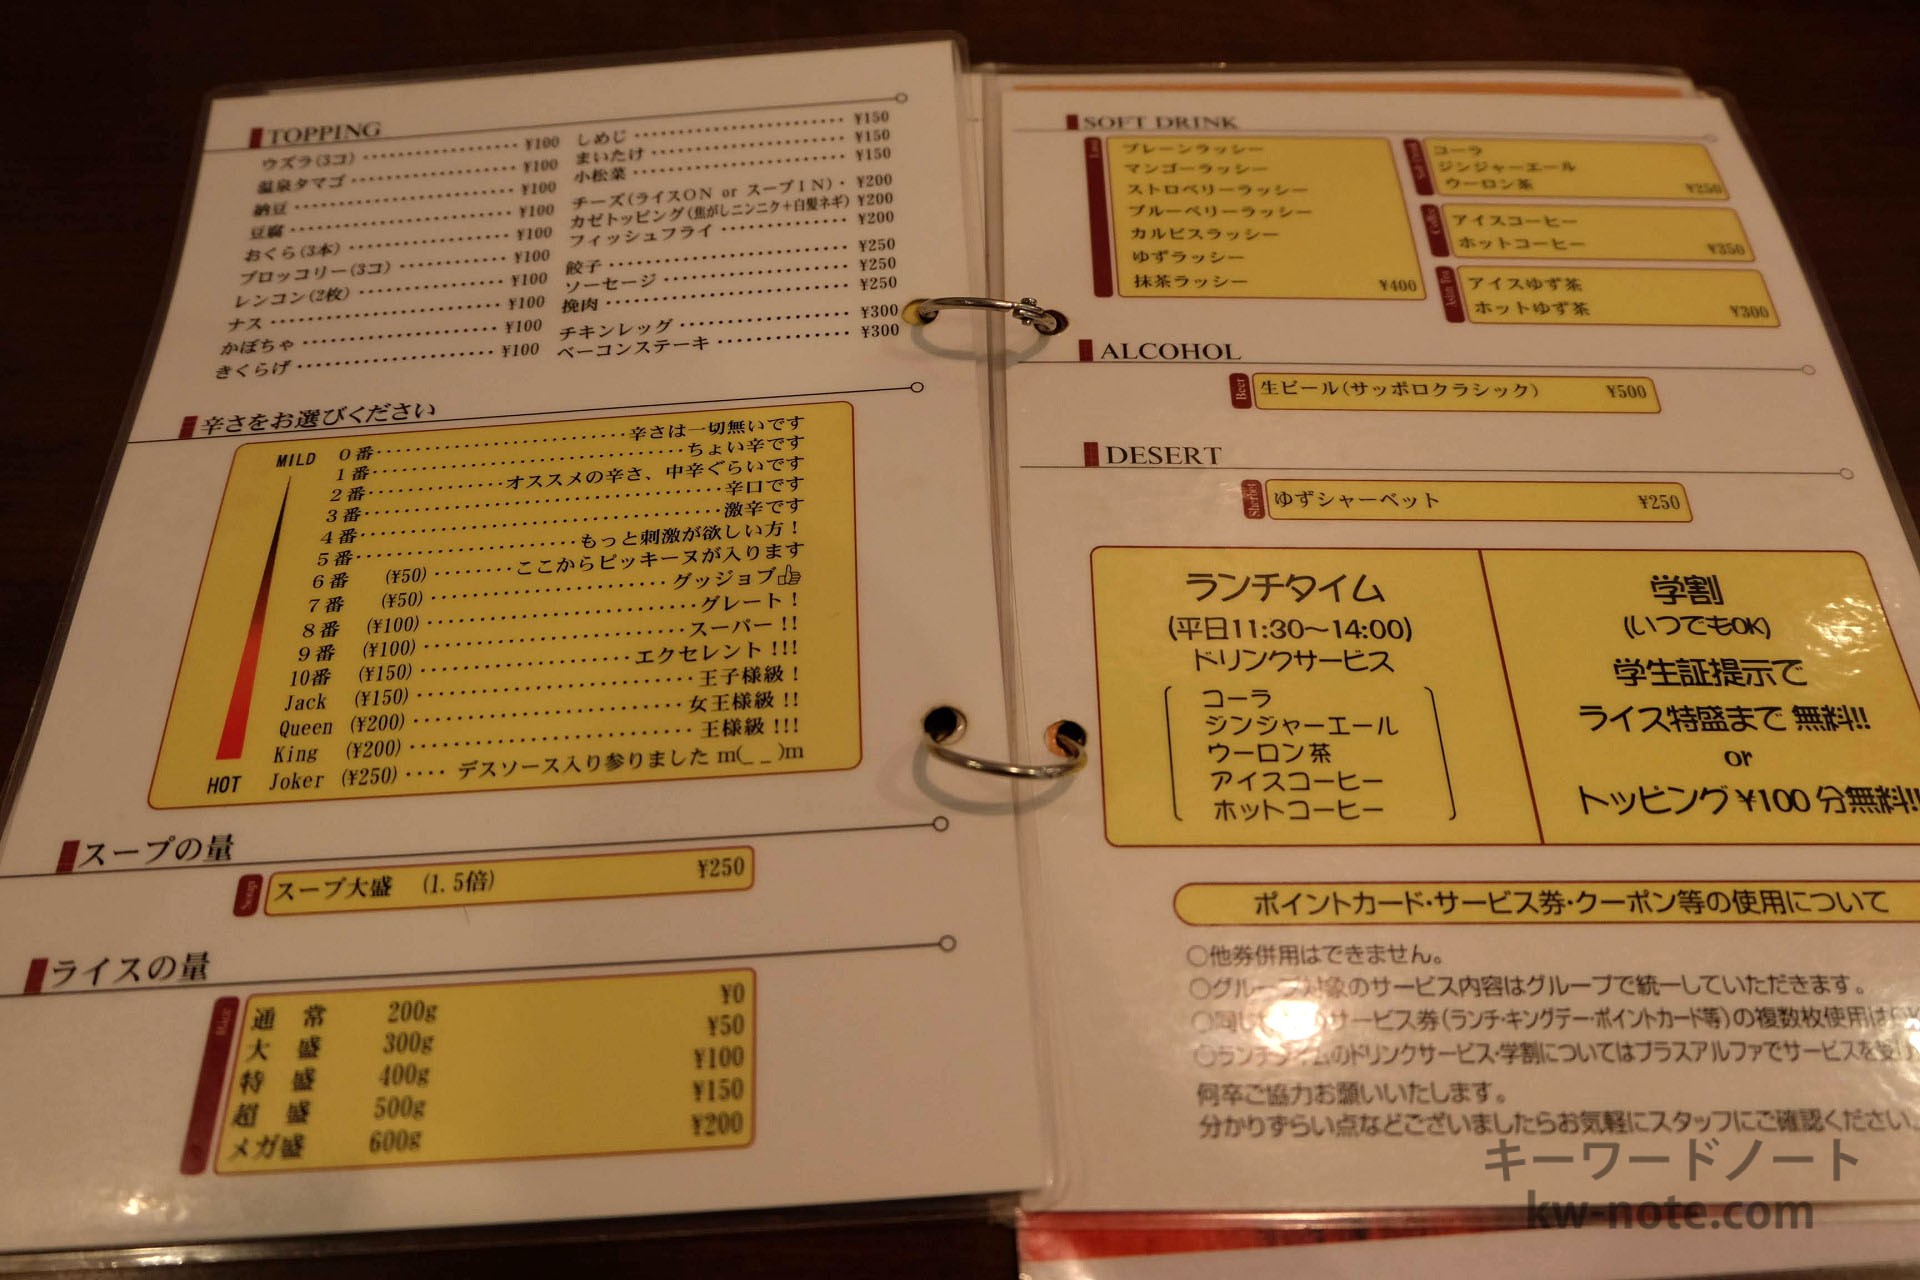 TOPPING
ウズラ(3コ) ¥100
温泉タマゴ ¥100
納豆 ¥100
豆腐 ¥100
おくら(3本) ¥100
ブロッコリー(3コ) ¥100
レンコン(2枚) ¥100
ナス ¥100
かぼちゃ ¥100
きくらげ ¥100
しめじ ¥150
まいたけ ¥150
小松菜 ¥150
チーズ(ライスON or スープIN) ¥200
カゼトッピング(焦がしニンニク+白髪ネギ) ¥200
フィッシュフライ ¥200
餃子 ¥250
ソーセージ ¥250
挽肉 ¥250
チキンレッグ ¥300
ベーコンステーキ ¥300
辛さをお選びください
MILD 0番 辛さは一切無いです
1番 ちょい辛です
2番 オススメの辛さ、中辛ぐらいです
3番 辛口です
4番 激辛です
5番 もっと刺激が欲しい方!
6番 (¥50) ここからピッキーヌが入ります
7番 (¥50) グッジョブ
8番 (¥100) グレート!
9番 (¥100) スーパー!!
10番 (¥150) エクセレント!!!
Jack (¥150) 王子様級!
Queen (¥200) 女王様級!!
King (¥200) 王様級!!!
HOT Joker (¥250) デスソース入り参りました m(_ _)m
スープの量
Soup スープ大盛 (1.5倍) ¥250
ライスの量
Rice
通常 200g ¥0
大盛 300g ¥50
特盛 400g ¥100
超盛 500g ¥150
メガ盛 600g ¥200
SOFT DRINK
プレーンラッシー
マンゴーラッシー
ストロベリーラッシー
ブルーベリーラッシー
カルピスラッシー
ゆずラッシー
抹茶ラッシー ¥400
コーラ
ジンジャーエール
ウーロン茶 ¥250
Coffee
アイスコーヒー
ホットコーヒー ¥350
Asian Tea
アイスゆず茶
ホットゆず茶 ¥300
ALCOHOL
Beer 生ビール(サッポロクラシック) ¥500
DESERT
Sherbet ゆずシャーベット ¥250
ランチタイム
(平日11:30〜14:00)
ドリンクサービス
コーラ
ジンジャーエール
ウーロン茶
アイスコーヒー
ホットコーヒー
学割
(いつでもOK)
学生証提示で
ライス特盛まで 無料!!
or
トッピング¥100 分無料!!
ポイントカード・サービス券・クーポン等の使用について
○他券併用はできません。
○グループ対象のサービス内容はグループで統一していただきます。
○同じ サービス券(ランチ・キングデー・ポイントカード等)の複数枚使用は
○ランチタイムのドリンクサービス・学割についてはプラスアルファでサービスを受け
何卒ご協力お願いいたします。
分かりずらい点などございましたらお気軽にスタッフにご確認ください。
キーワードノート
kw-note.com